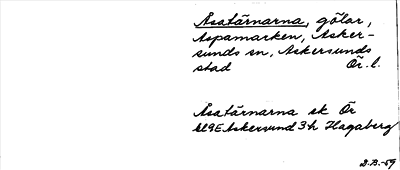 Åsatärnarna, gölar,
Aspamarken, Asker-
sunds sn, Askersunds
stad Ör. l.
Åsatärnarna ek Ör
119E Askersund 3h Hagaberg
D.B.-59